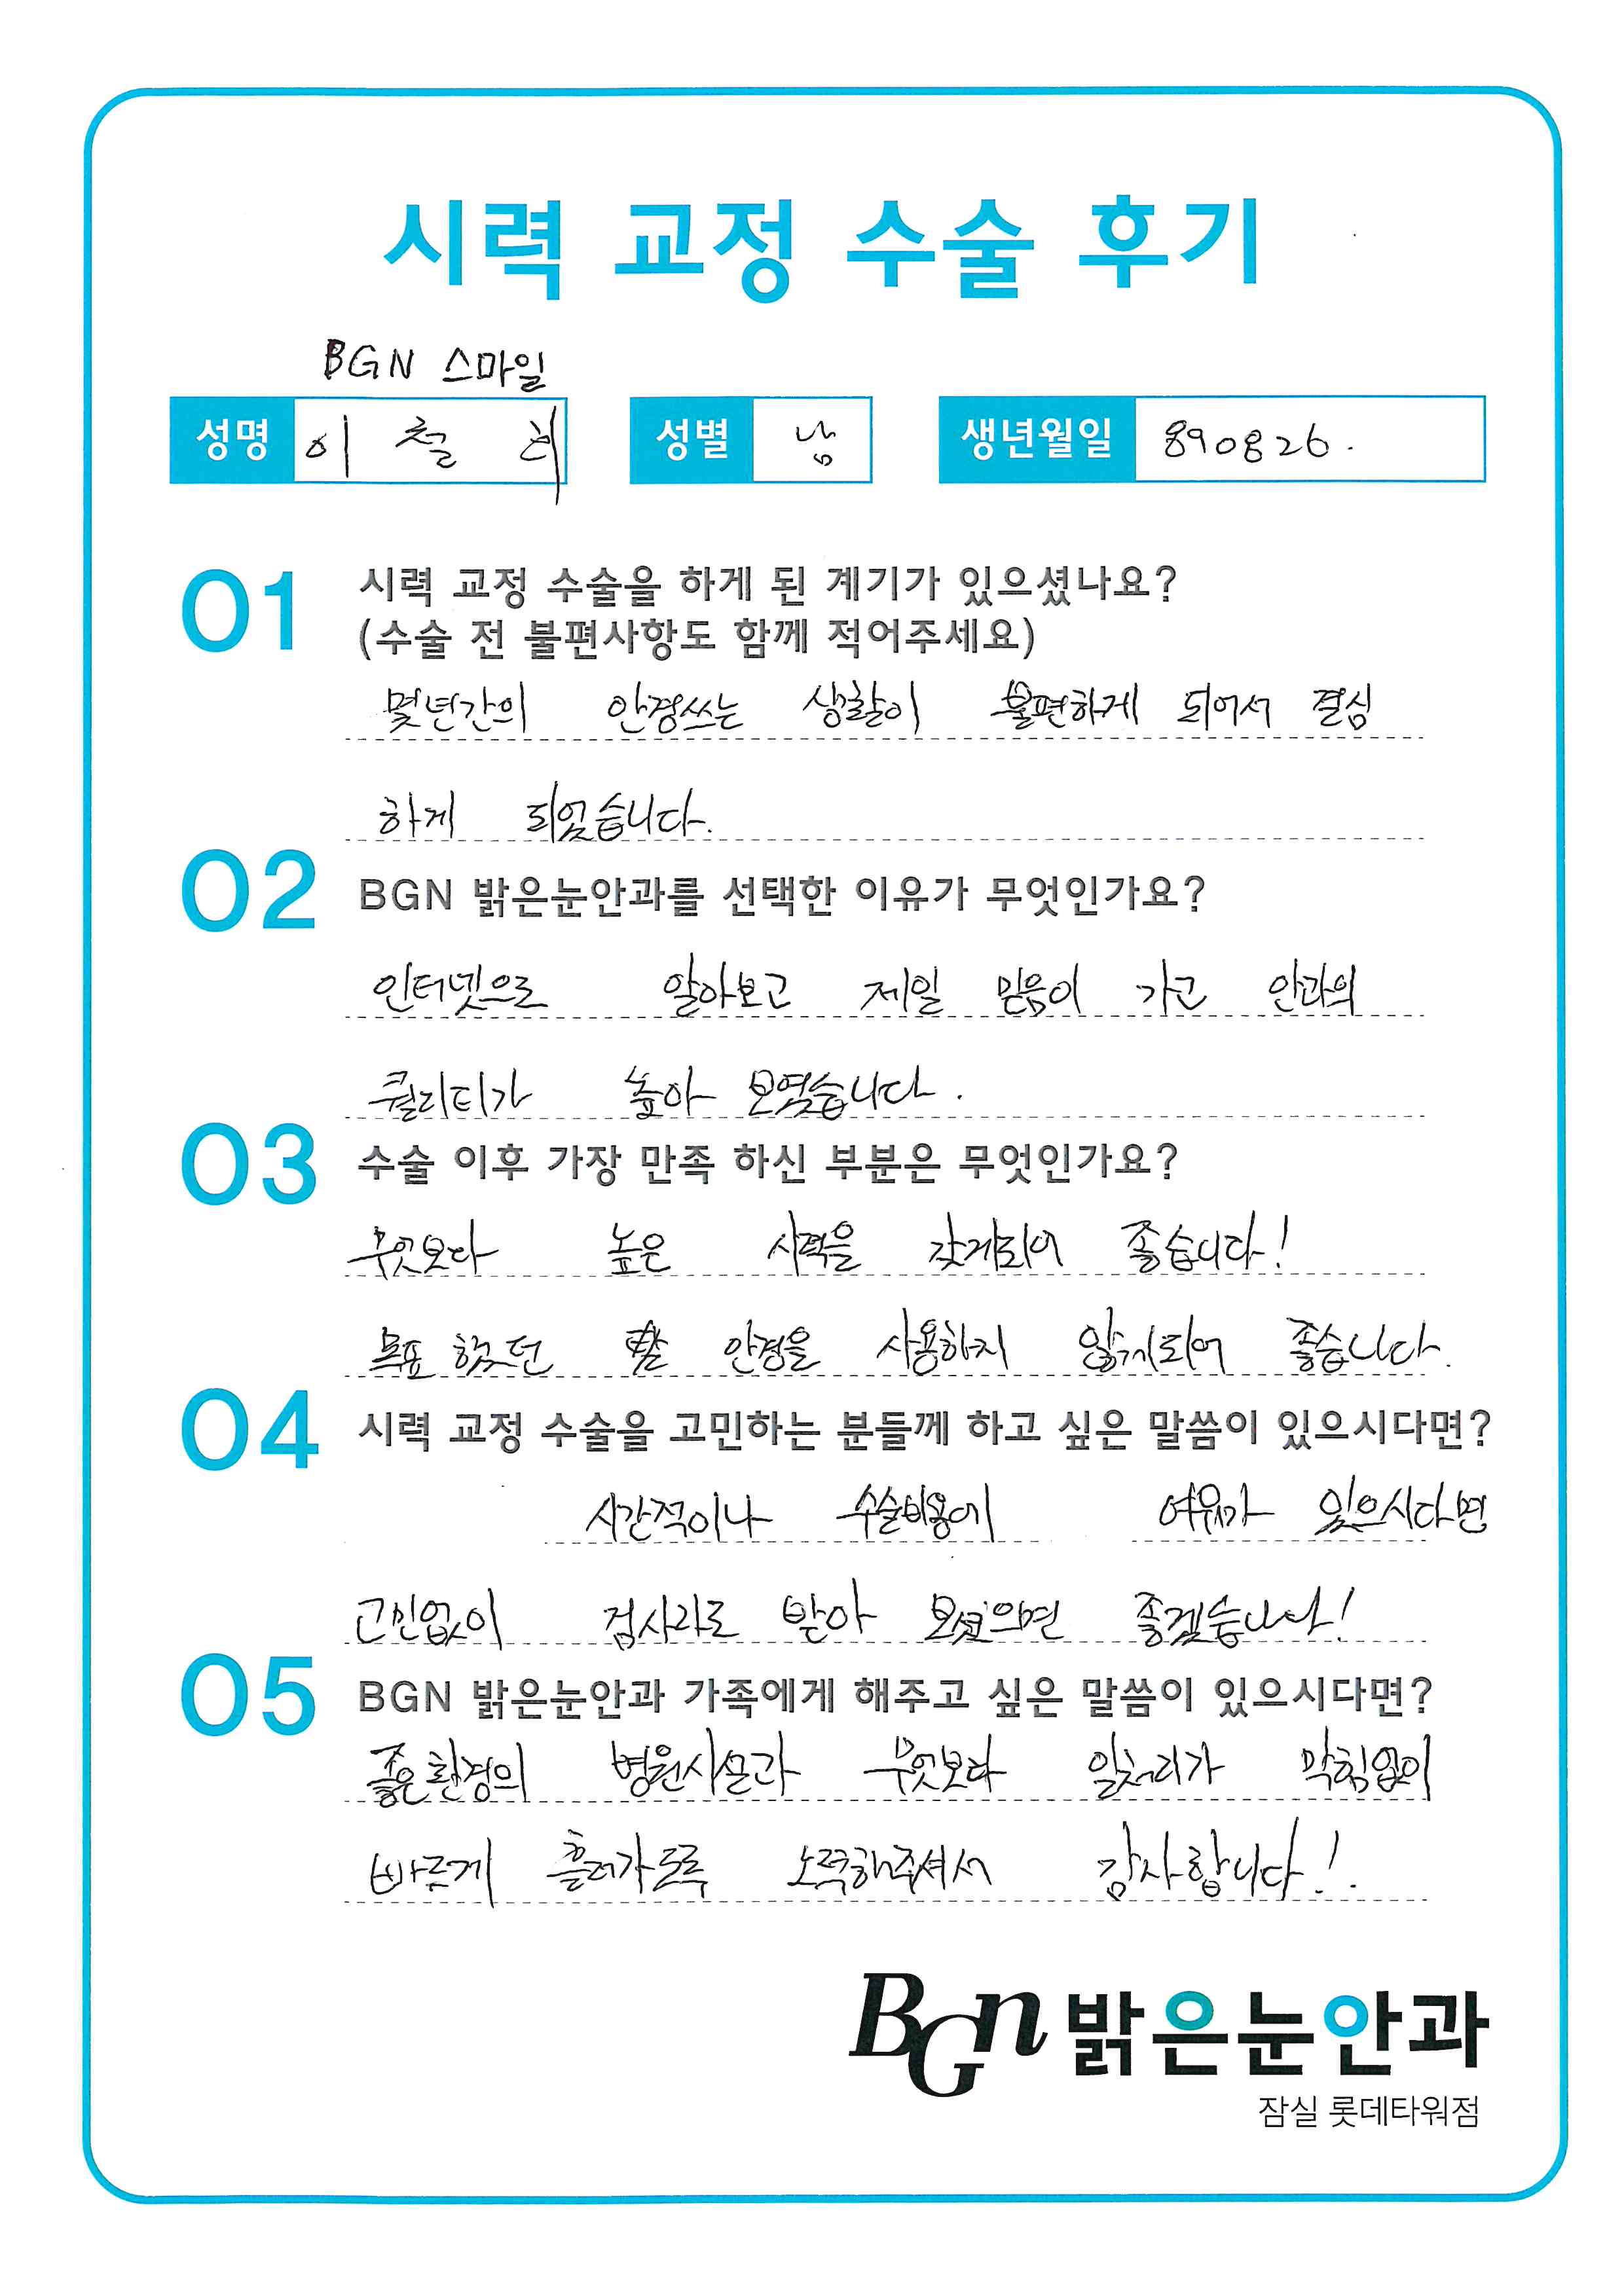 시력 교정 수술 후기
BGN 스마일
성명 이 철 희 성별 남 생년월일 890826.
01 시력 교정 수술을 하게 된 계기가 있으셨나요?
(수술 전 불편사항도 함께 적어주세요)
몇년간의 안경쓰는 생활이 불편하게 되어서 결심
하게 되었습니다.
02 BGN 밝은눈안과를 선택한 이유가 무엇인가요?
인터넷으로 알아보고 제일 믿음이 가고 안과의
퀄리티가 높아 보였습니다.
03 수술 이후 가장 만족 하신 부분은 무엇인가요?
무엇보다 높은 시력을 갖게되어 좋습니다!
목표했던 안경을 사용하지 않게되어 좋습니다.
04 시력 교정 수술을 고민하는 분들께 하고 싶은 말씀이 있으시다면?
시간적이나 수술비용에 여유가 있으시다면
고민없이 검사라도 받아 보셨으면 좋겠습니다!
05 BGN 밝은눈안과 가족에게 해주고 싶은 말씀이 있으시다면?
좋은환경의 병원시설과 무엇보다 일처리가 막힘없이
빠르게 흘러가도록 노력해주셔서 감사합니다!!
BGn 밝은눈안과
잠실 롯데타워점